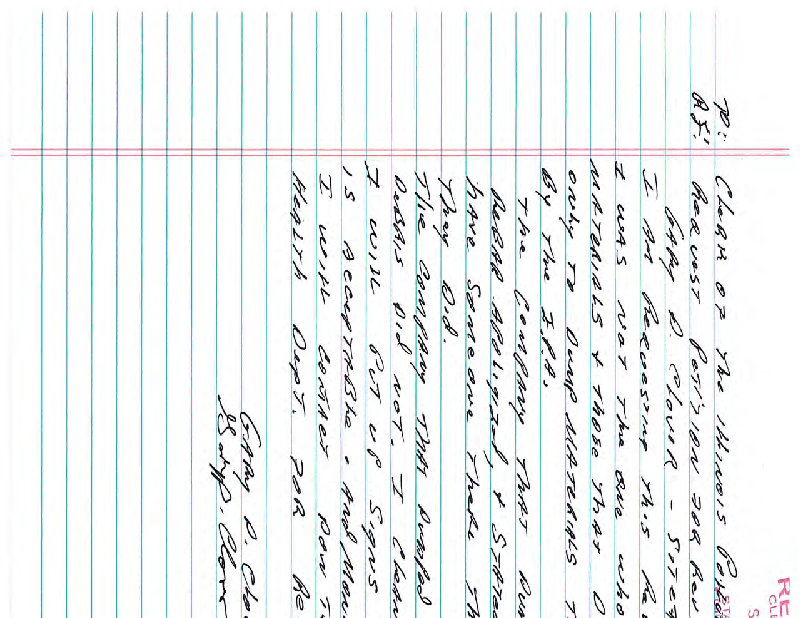 RE
CLE
S
STA
To: Clerk of the Illinois
RE: Request Petition for Rev
Gary D. Clover - Site
I Am Requesting this Re
I was not the one who
Materials & those that D
only to Dump Materials
By the
The Company that Dum
Rebar Apoligized, & Stated
have someone there th
They Did.
The Company that Dumped
Debris Did not. I Clean
I will Put up Signs
is Acceptable. And
I will contact Don
Health Dept. for Re
Gary D. Clov
Gary D. Clove